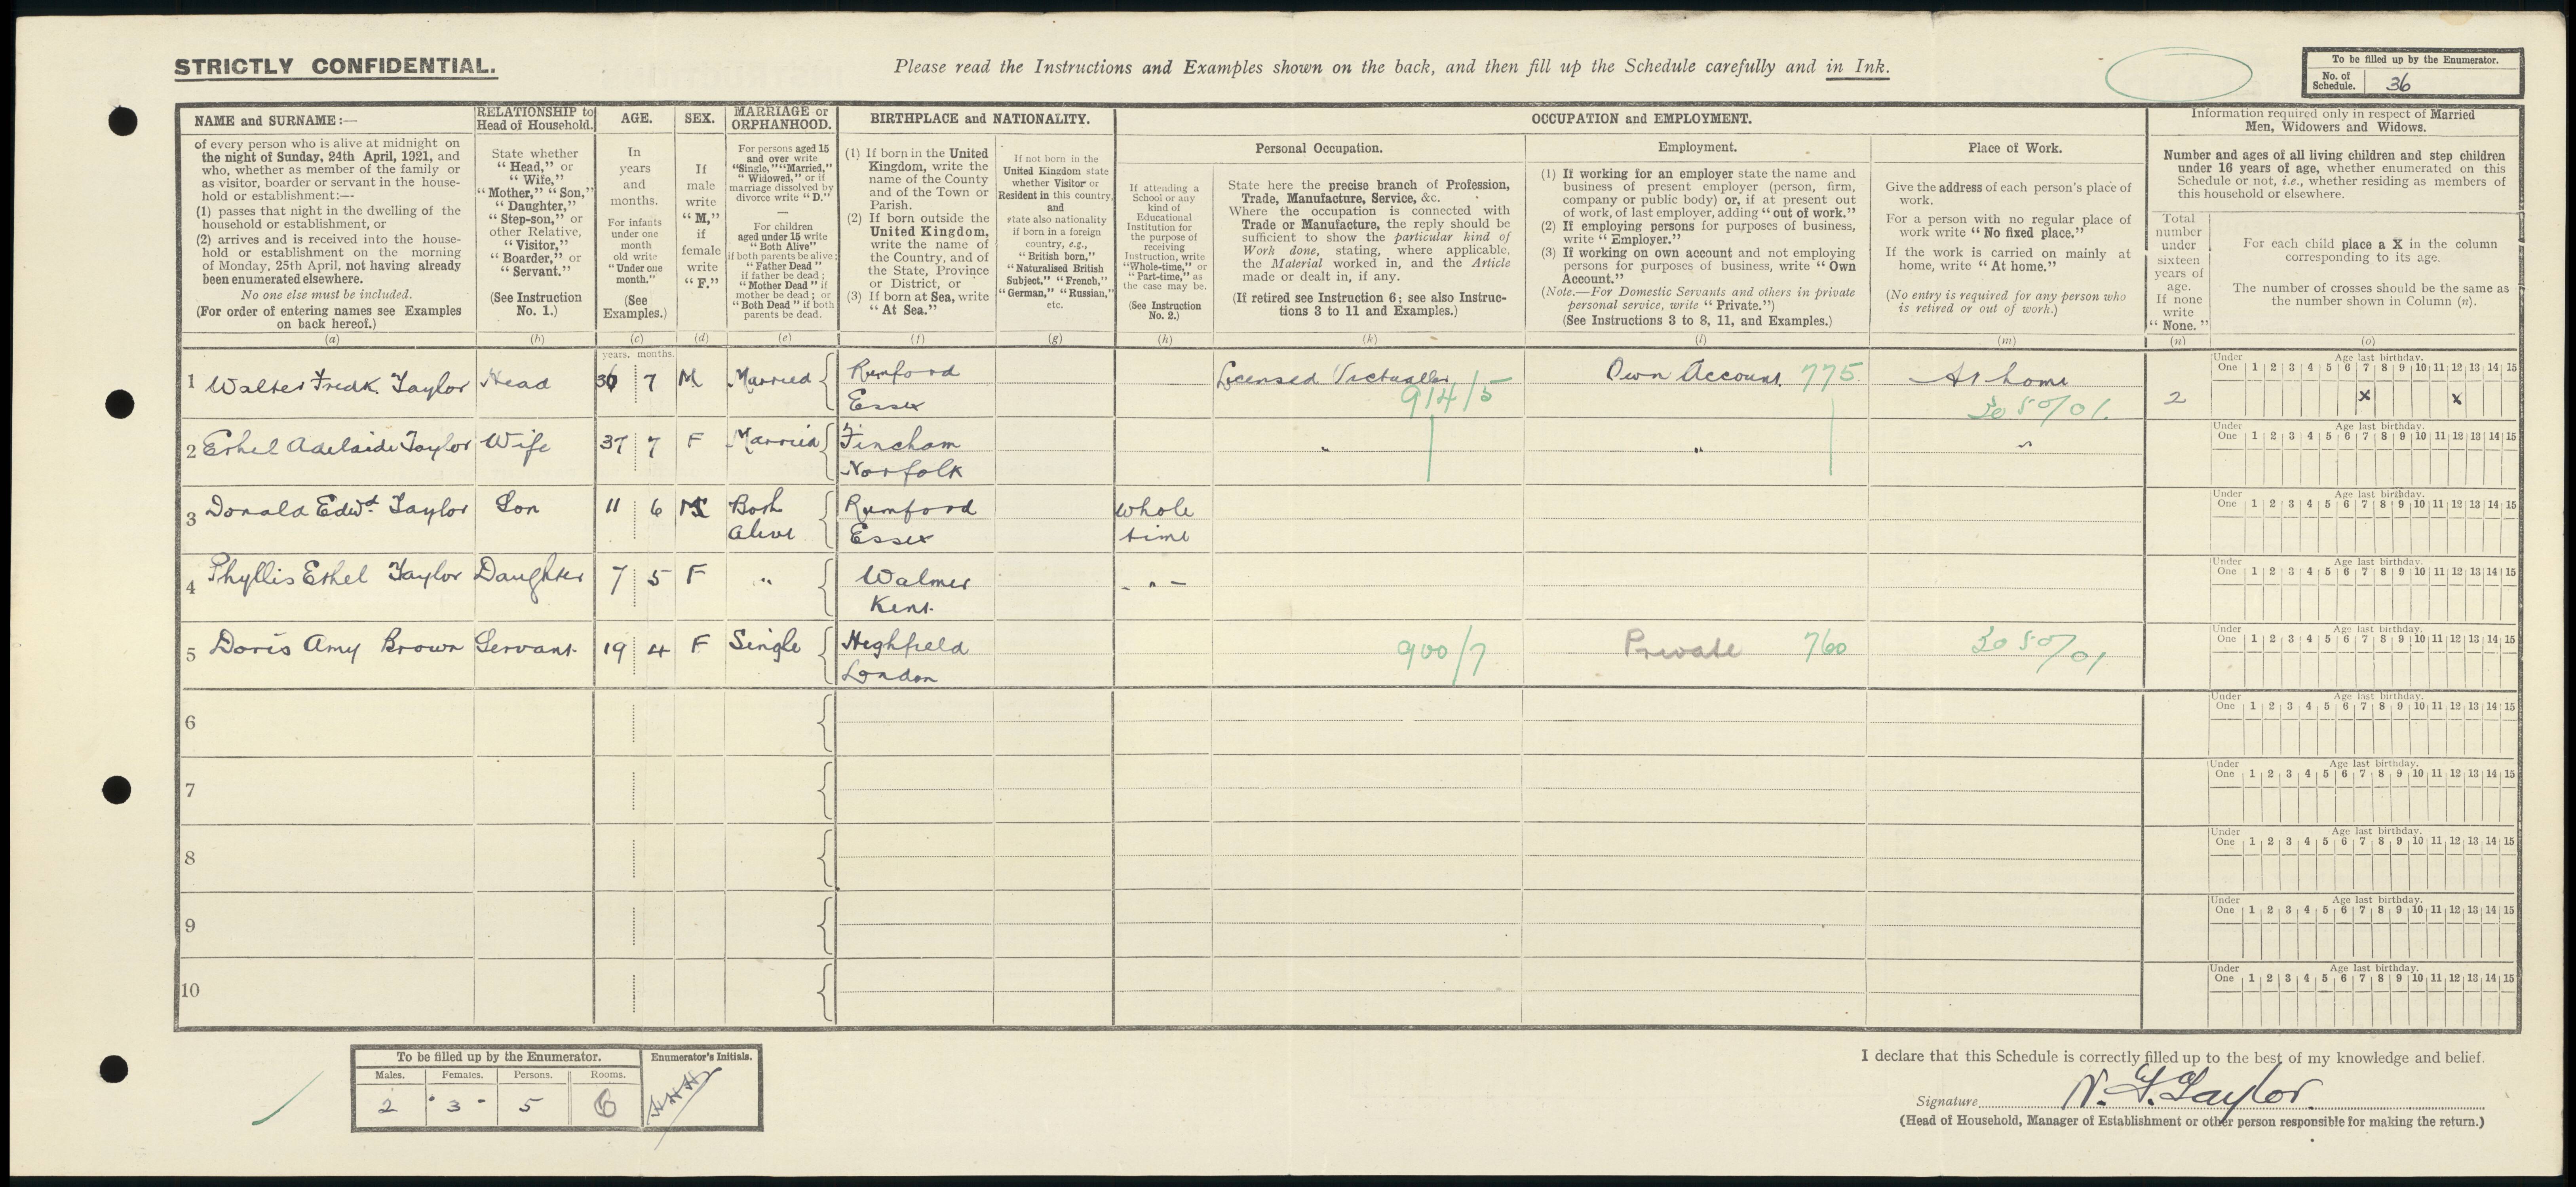 STRICTLY CONFIDENTIAL.
Please read the Instructions and Examples shown on the back, and then fill up the Schedule carefully and in Ink.
To be filled up by the Enumerator.
No. of Schedule. 36
NAME and SURNAME:—
of every person who is alive at midnight on
the night of Sunday, 24th April, 1921, and
who, whether as member of the family or
as visitor, boarder or servant in the house-
hold or establishment:—
(1) passes that night in the dwelling of the
household or establishment, or
(2) arrives and is received into the house-
hold or establishment on the morning
of Monday, 25th April, not having already
been enumerated elsewhere.
No one else must be included.
(For order of entering names see Examples
on back hereof.)
(a)
RELATIONSHIP to
Head of Household.
State whether
"Head," or
"Wife,"
"Mother," "Son,"
"Daughter,"
"Step-son," or
other Relative,
"Visitor,"
"Boarder," or
"Servant."
(See Instruction
No. 1.)
(b)
AGE.
In
years
and
months.
For infants
under one
month
old write
"Under one
month."
(See
Examples.)
(c)
SEX.
If
male
write
"M,"
if
female
write
"F."
(d)
MARRIAGE or
ORPHANHOOD.
For persons aged 15
and over write
"Single," "Married,"
"Widowed," or if
marriage dissolved by
divorce write "D."
—
For children
aged under 15 write
"Both Alive"
if both parents be alive;
"Father Dead"
if father be dead;
"Mother Dead" if
mother be dead; or
"Both Dead" if both
parents be dead.
(e)
BIRTHPLACE and NATIONALITY.
(1) If born in the United
Kingdom, write the
name of the County
and of the Town or
Parish.
(2) If born outside the
United Kingdom,
write the name of
the Country, and of
the State, Province
or District, or
(3) If born at Sea, write
"At Sea."
(f)
If not born in the
United Kingdom state
whether Visitor or
Resident in this country,
and
state also nationality
if born in a foreign
country, e.g.,
"British born,"
"Naturalised British
Subject," "French,"
"German," "Russian,"
etc.
(g)
OCCUPATION and EMPLOYMENT.
If attending a
School or any
kind of
Educational
Institution for
the purpose of
receiving
Instruction, write
"Whole-time," or
"Part-time," as
the case may be.
(See Instruction
No. 2.)
(h)
Personal Occupation.
State here the precise branch of Profession,
Trade, Manufacture, Service, &c.
Where the occupation is connected with
Trade or Manufacture, the reply should be
sufficient to show the particular kind of
Work done, stating, where applicable,
the Material worked in, and the Article
made or dealt in, if any.
(If retired see Instruction 6; see also Instruc-
tions 3 to 11 and Examples.)
(k)
Employment.
(1) If working for an employer state the name and
business of present employer (person, firm,
company or public body) or, if at present out
of work, of last employer, adding "out of work."
(2) If employing persons for purposes of business,
write "Employer."
(3) If working on own account and not employing
persons for purposes of business, write "Own
Account."
(Note.—For Domestic Servants and others in private
personal service, write "Private.")
(See Instructions 3 to 8, 11, and Examples.)
(l)
Place of Work.
Give the address of each person's place of
work.
For a person with no regular place of
work write "No fixed place."
If the work is carried on mainly at
home, write "At home."
(No entry is required for any person who
is retired or out of work.)
(m)
Information required only in respect of Married
Men, Widowers and Widows.
Number and ages of all living children and step children
under 16 years of age, whether enumerated on this
Schedule or not, i.e., whether residing as members of
this household or elsewhere.
Total
number
under
sixteen
years of
age.
If none
write
"None."
(n)
For each child place a X in the column
corresponding to its age.
The number of crosses should be the same as
the number shown in Column (n).
(o)
years. months.
Under One 1 2 3 4 5 6 7 8 9 10 11 12 13 14 15
Age last birthday.
1 Walter Fredk. Taylor Head 36 7 M Married Rumford Essex Licensed Victualler 914/5 Own Account 775 At home 3050/01 2 x x
Under One 1 2 3 4 5 6 7 8 9 10 11 12 13 14 15
Age last birthday.
2 Ethel Adelaide Taylor Wife 37 7 F Married Fincham Norfolk " " "
Under One 1 2 3 4 5 6 7 8 9 10 11 12 13 14 15
Age last birthday.
3 Donald Edwd. Taylor Son 11 6 M Both Alive Rumford Essex whole time
Under One 1 2 3 4 5 6 7 8 9 10 11 12 13 14 15
Age last birthday.
4 Phyllis Ethel Taylor Daughter 7 5 F " Walmer Kent - " -
Under One 1 2 3 4 5 6 7 8 9 10 11 12 13 14 15
Age last birthday.
5 Doris Amy Brown Servant 19 4 F Single Highfield London 900/7 Private 760 3050/01
Under One 1 2 3 4 5 6 7 8 9 10 11 12 13 14 15
Age last birthday.
6
Under One 1 2 3 4 5 6 7 8 9 10 11 12 13 14 15
Age last birthday.
7
Under One 1 2 3 4 5 6 7 8 9 10 11 12 13 14 15
Age last birthday.
8
Under One 1 2 3 4 5 6 7 8 9 10 11 12 13 14 15
Age last birthday.
9
Under One 1 2 3 4 5 6 7 8 9 10 11 12 13 14 15
Age last birthday.
10
Under One 1 2 3 4 5 6 7 8 9 10 11 12 13 14 15
Age last birthday.
To be filled up by the Enumerator.
Enumerator's Initials.
Males. Females. Persons. Rooms.
2 3 5 6
I declare that this Schedule is correctly filled up to the best of my knowledge and belief.
Signature W. F. Taylor.
(Head of Household, Manager of Establishment or other person responsible for making the return.)